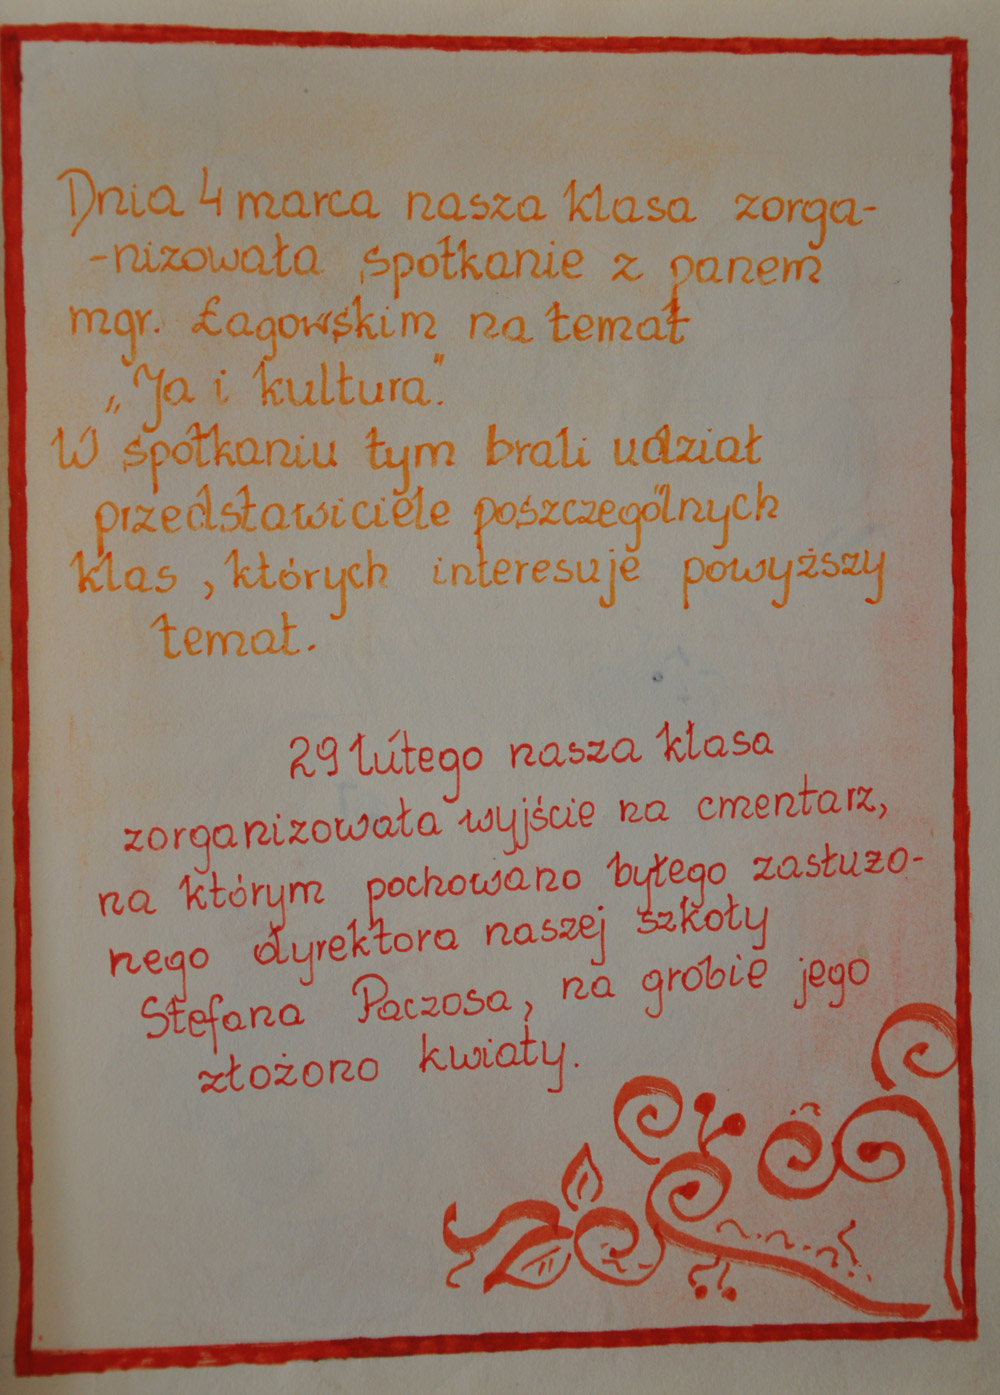 Dnia 4 marca nasza klasa zorga-
-nizowała spotkanie z panem
mgr. Łagowskim na temat
„Ja i kultura".
W spotkaniu tym brali udział
przedstawiciele poszczególnych
klas, których interesuje powyższy
temat.
29 lutego nasza klasa
zorganizowała wyjście na cmentarz,
na którym pochowano byłego zasłużo-
nego dyrektora naszej szkoły
Stefana Paczosa, na grobie jego
złożono kwiaty.